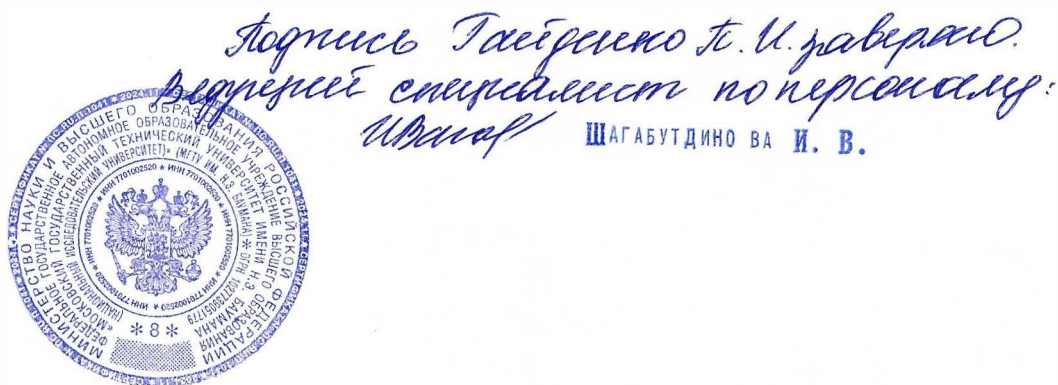 Подпись Гайденко П. И. заверяю.
Ведущий специалист по персоналу:
ШАГАБУТДИНО ВА И. В.
МИНИСТЕРСТВО НАУКИ И ВЫСШЕГО ОБРАЗОВАНИЯ РОССИЙСКОЙ ФЕДЕРАЦИИ
ФЕДЕРАЛЬНОЕ ГОСУДАРСТВЕННОЕ АВТОНОМНОЕ ОБРАЗОВАТЕЛЬНОЕ УЧРЕЖДЕНИЕ ВЫСШЕГО ОБРАЗОВАНИЯ
«МОСКОВСКИЙ ГОСУДАРСТВЕННЫЙ ТЕХНИЧЕСКИЙ УНИВЕРСИТЕТ ИМЕНИ Н.Э. БАУМАНА
(НАЦИОНАЛЬНЫЙ ИССЛЕДОВАТЕЛЬСКИЙ УНИВЕРСИТЕТ)» (МГТУ ИМ. Н.Э. БАУМАНА) * ОГРН 1027739051779
* ИНН 7701002520 * ИНН 7701002520 * ИНН 7701002520 * ИНН 7701002520
* 8 *